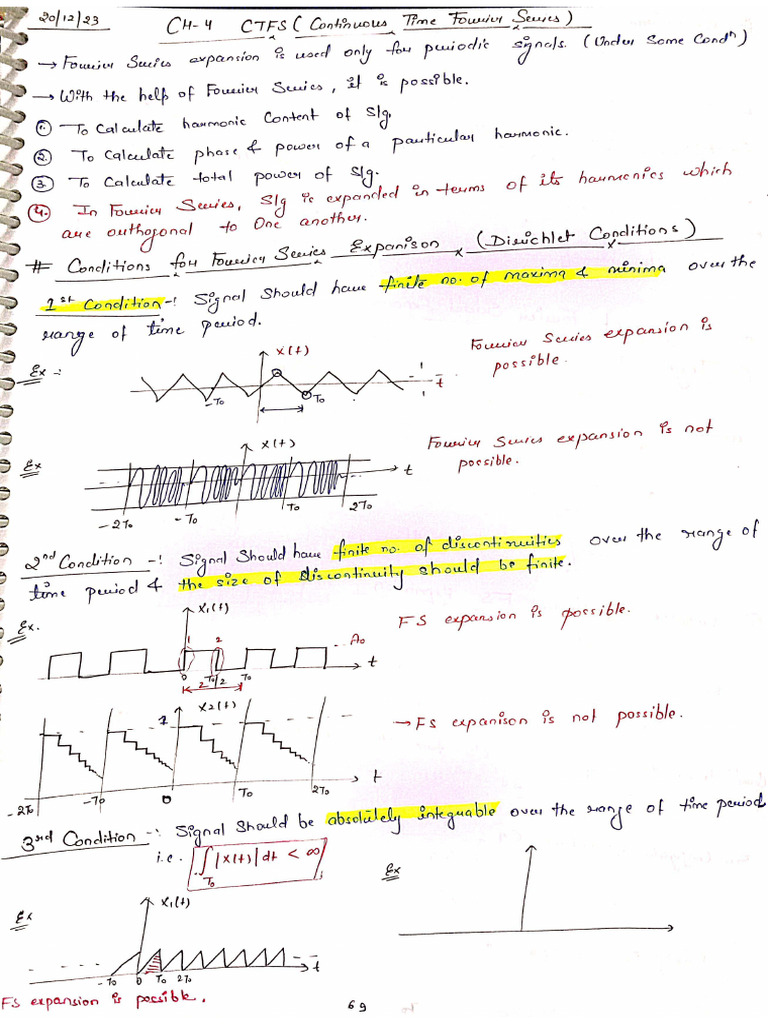 20/12/23
CH-4 CTFS (Continuous Time Fourier Series)
→ Fourier Series expansion is used only for periodic signals. (Under Some Condⁿ)
→ With the help of Fourier Series, it is possible.
① To Calculate harmonic Content of Sig.
② To Calculate phase & power of a particular harmonic.
③ To Calculate total power of Sig.
④ In Fourier Series, Sig is expanded in terms of its harmonics which
are orthogonal to One another.
# Conditions for Fourier Series Expanison (Dirichlet Conditions)
1st Condition -: Signal Should have finite no. of maxima & minima over the
range of time period.
Fourier Series expansion is
possible.
Ex :-
x(t)
-To To t
Fourier Series expansion is not
possible.
Ex
x(t)
t
-2To -To To 2To
2nd Condition -: Signal Should have finite no. of discontinuities over the range of
time period & the size of discontinuity should be finite.
Ex.
x1(t)
FS expansion is possible.
1 2 Ao
0 To/2 To t
2
x2(t)
1
→ FS expanison is not possible.
-2To -To 0 To 2To t
3rd Condition -: Signal Should be absolutely integrable over the range of time period
i.e. ∫To |x(t)| dt < ∞
Ex
Ex
x1(t)
-To 0 To 2To t
FS expansion is possible.
69